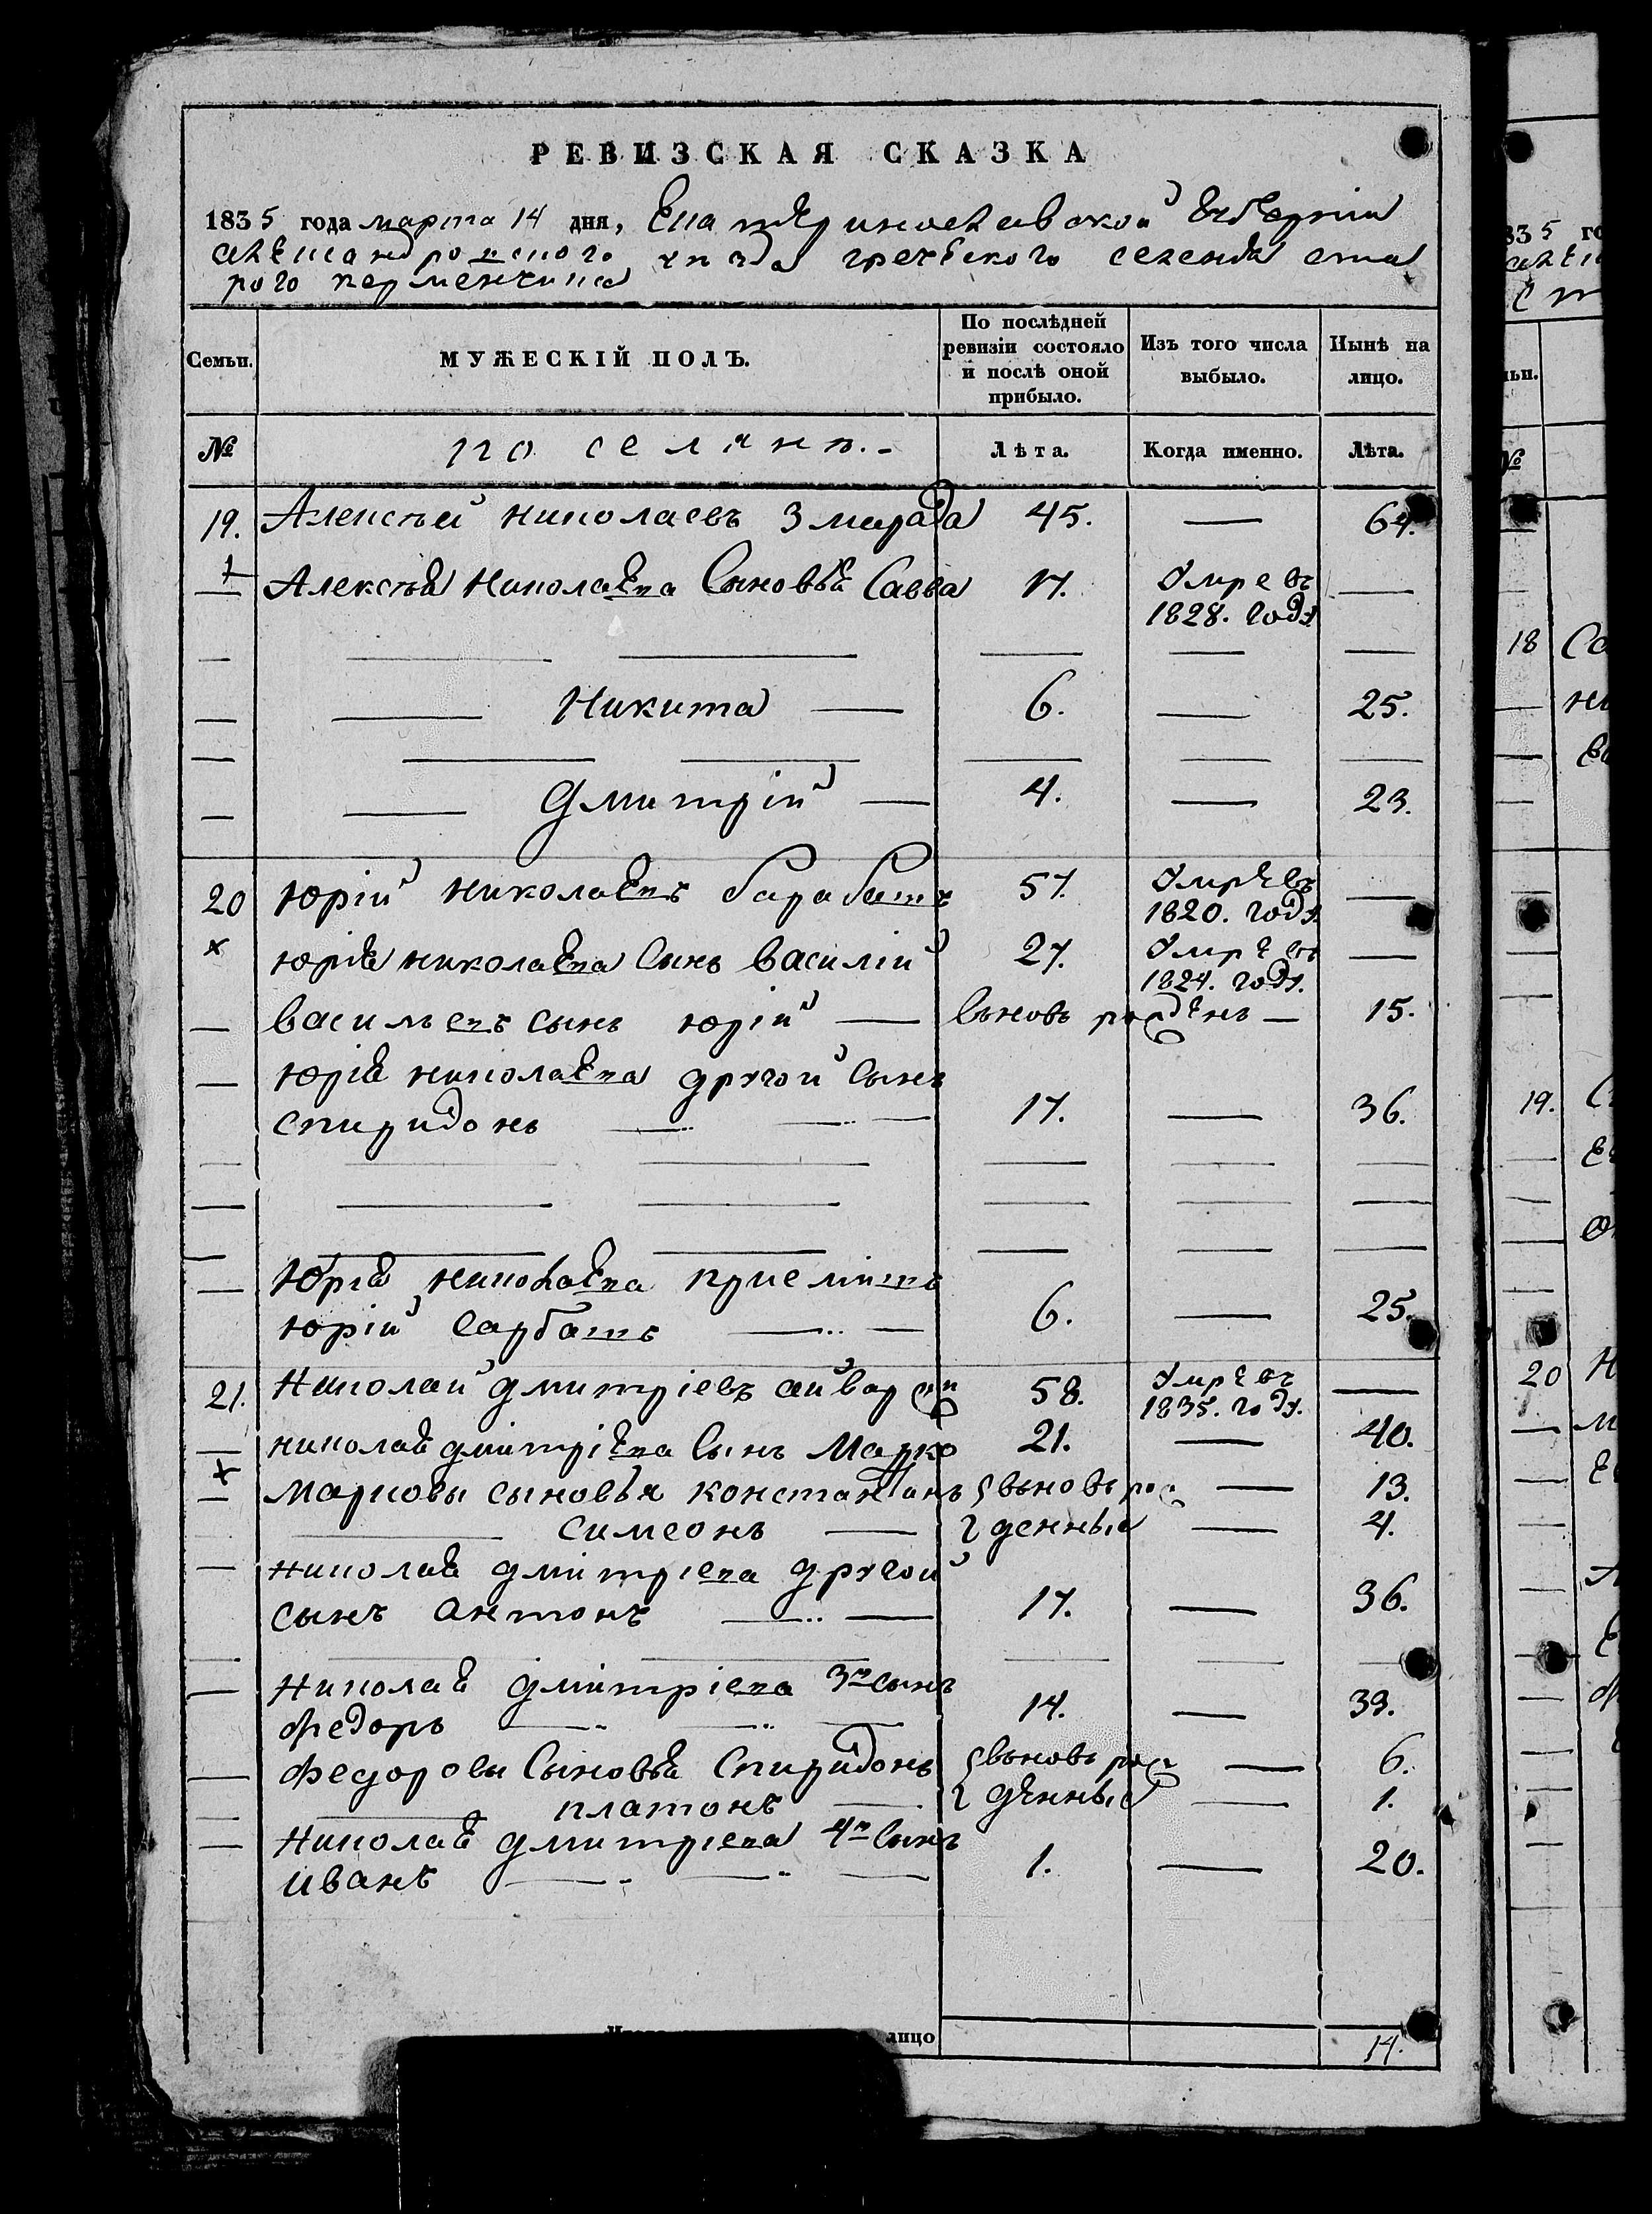 РЕВИЗСКАЯ СКАЗКА
1835 года марта 14 дня, Екатеринославской Губерніи
александровского уезда греческого селенія ста
рого керменчика
Семьи. МУЖЕСКІЙ ПОЛЪ. По послѣдней ревизіи состояло и послѣ оной прибыло. Изъ того числа выбыло. Нынѣ на лицо.
№ по селянъ.- Лѣта. Когда именно. Лѣта.
19. Алексѣй николаевъ Змарада 45. — 64.
Алексѣя Николаева Сыновья Савва 17. Умре въ
1828. году —
— Никита — 6. — 25.
— Дмитрій — 4. — 23.
20 юрій николаевъ барабашъ 57. Умре въ
1820. году —
× юрія николаева Сынъ василій 27. Умре въ
1824. году. —
— васильевъ сынъ юрій — вьновь рожденъ — 15.
— юрія николаева другой Сынъ
спиридонъ — — 17. — 36.
— Юрія николаева приемишъ
юрій сарбашъ — — 6. — 25.
21. Николай дмитріевъ 58. Умре въ
1835. году. —
— николая дмитріева Сынъ Марко 21. — 40.
× марковы сыновья константинъ вьновь рож — 13.
— симеонъ — денныя — 4.
— николая дмитриева другой
сынъ антонъ — — 17. — 36.
— николая дмитріева 3й сынъ
федоръ — — — 14. — 33.
— федоровы Сыновья Спиридонъ вьновь рож — 6.
— платонъ — денныя — 1.
— николая дмитриева 4й Сынъ
иванъ — — — 1. — 20.
лицо 14.
35 го
18
19.
20